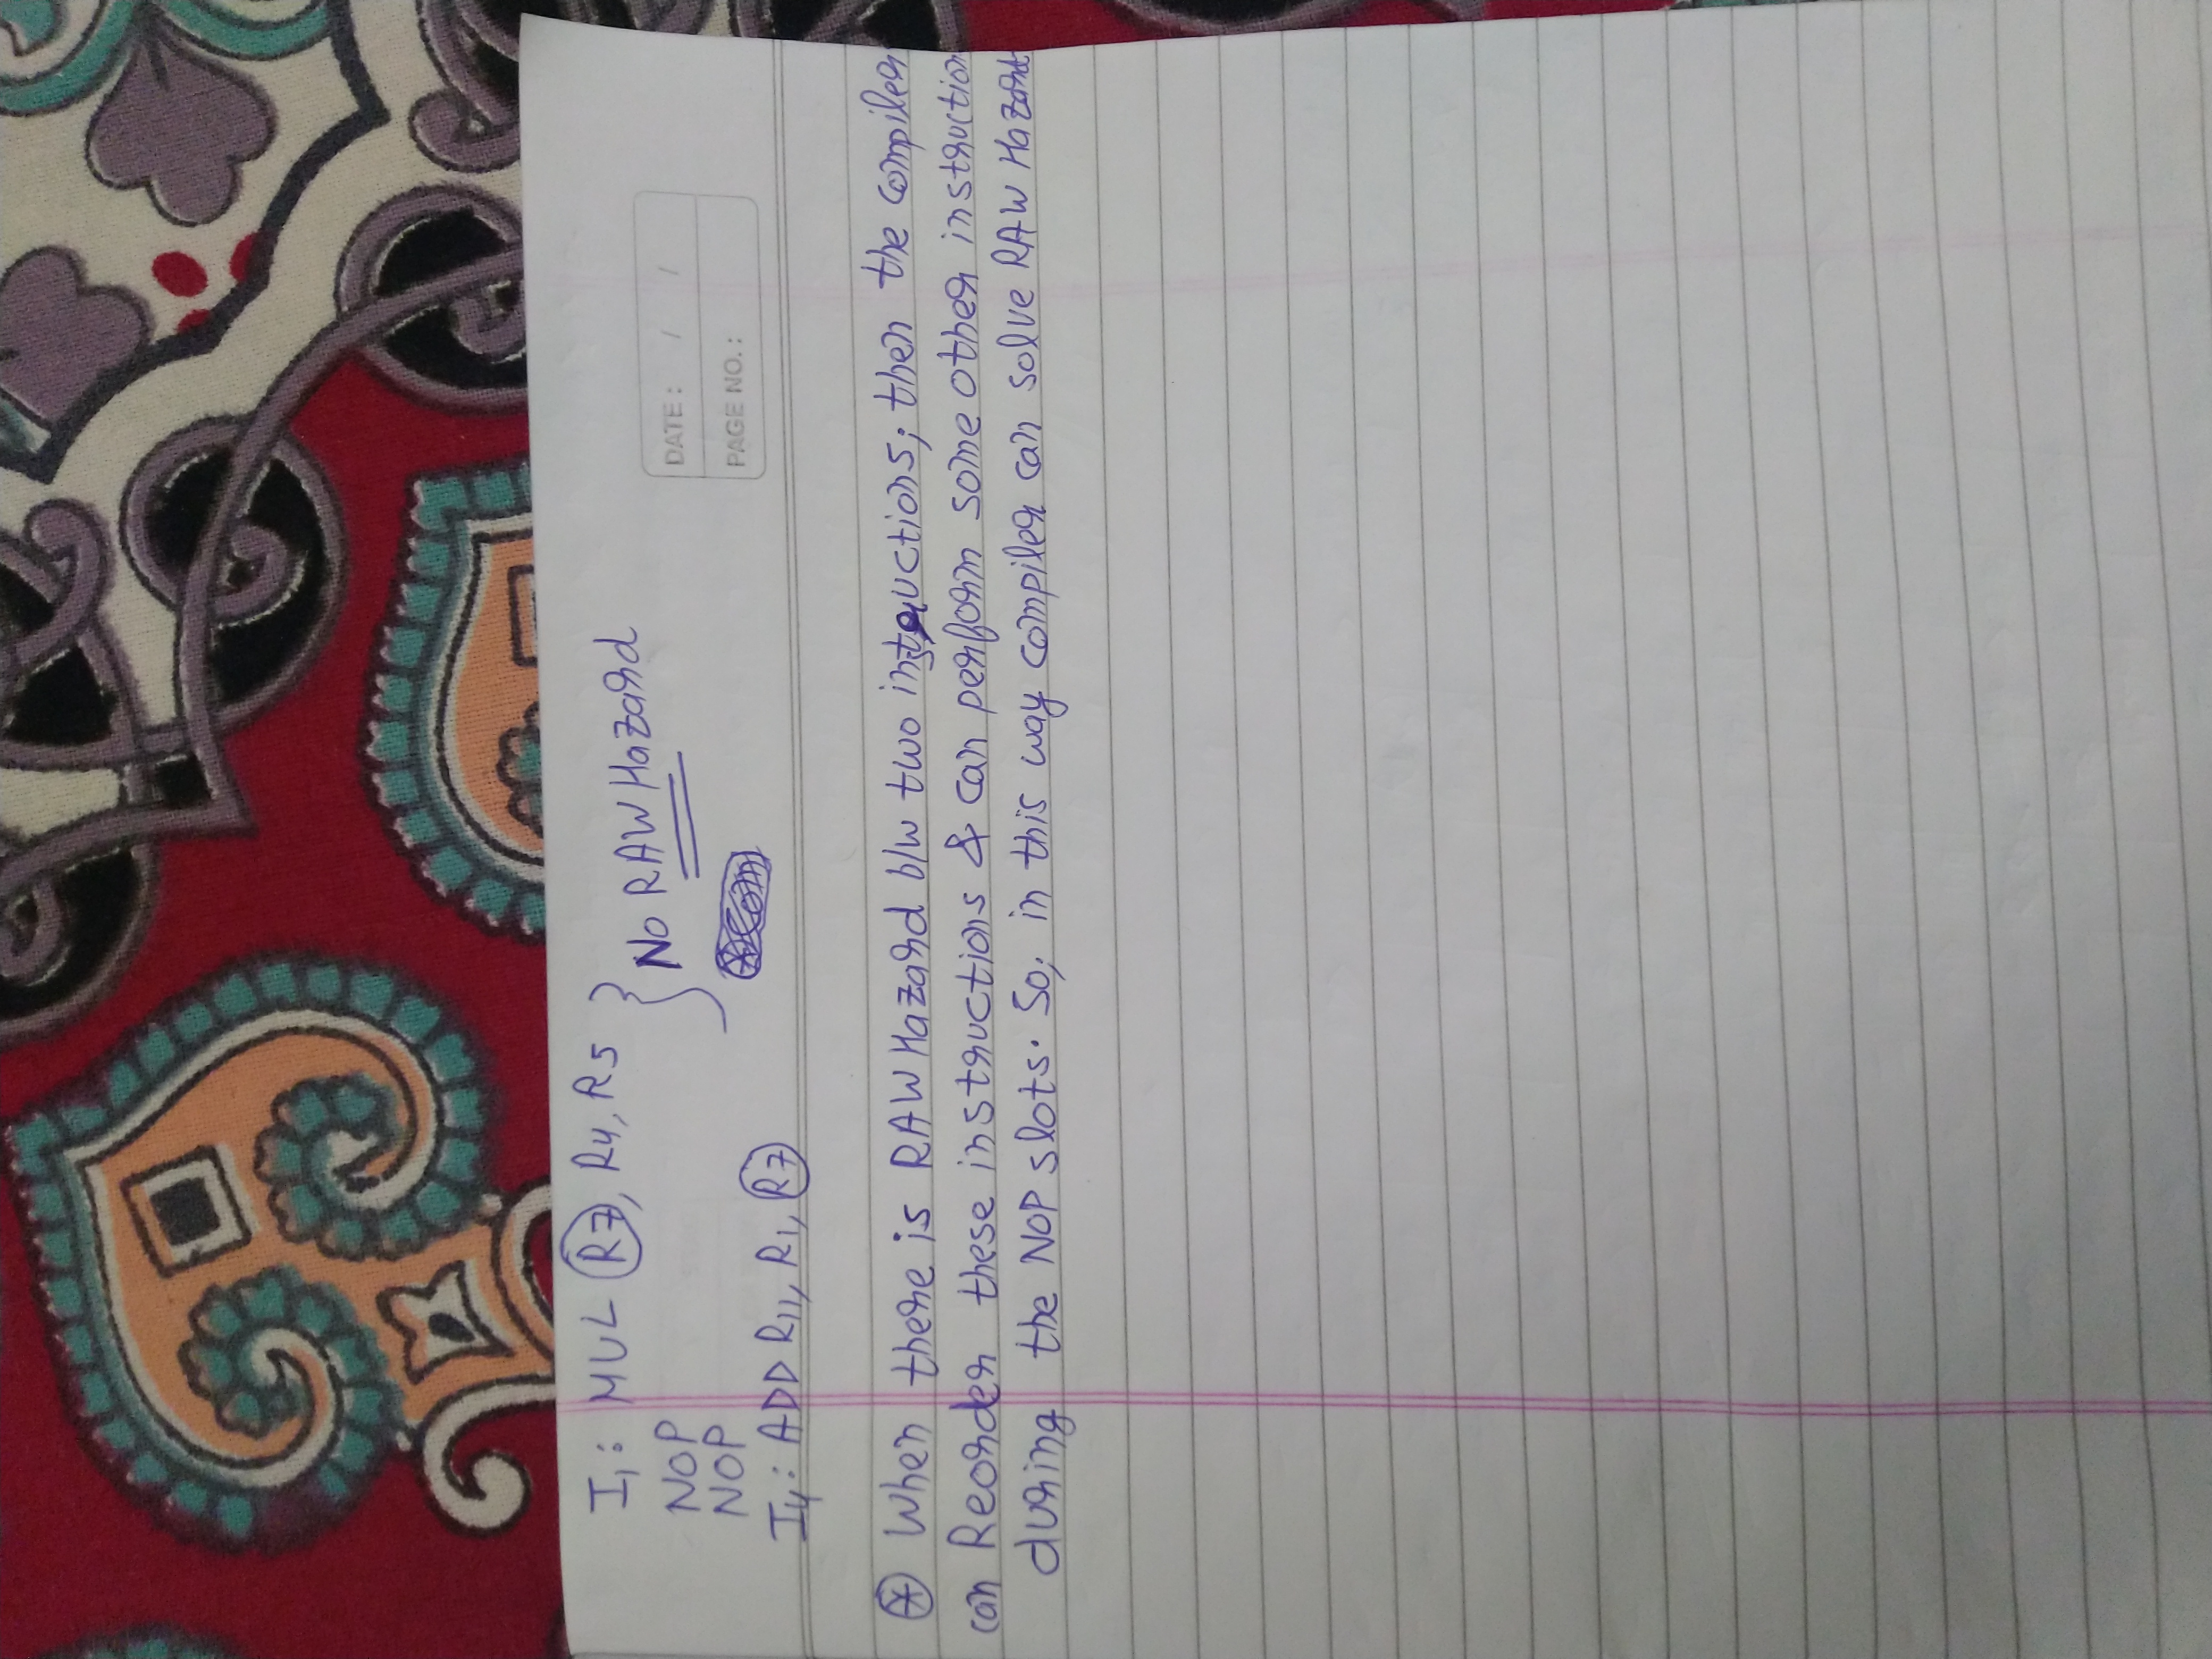 I1: MUL R7, R4, R5 } No RAW Hazard
NOP
NOP
I4: ADD R11, R1, R7
DATE: / /
PAGE NO.:
⊛ When there is RAW Hazard b/w two instructions; then the compiler
can Reorder these instructions & can perform some other instruction
during the NOP slots. So, in this way compiler can solve RAW Hazard